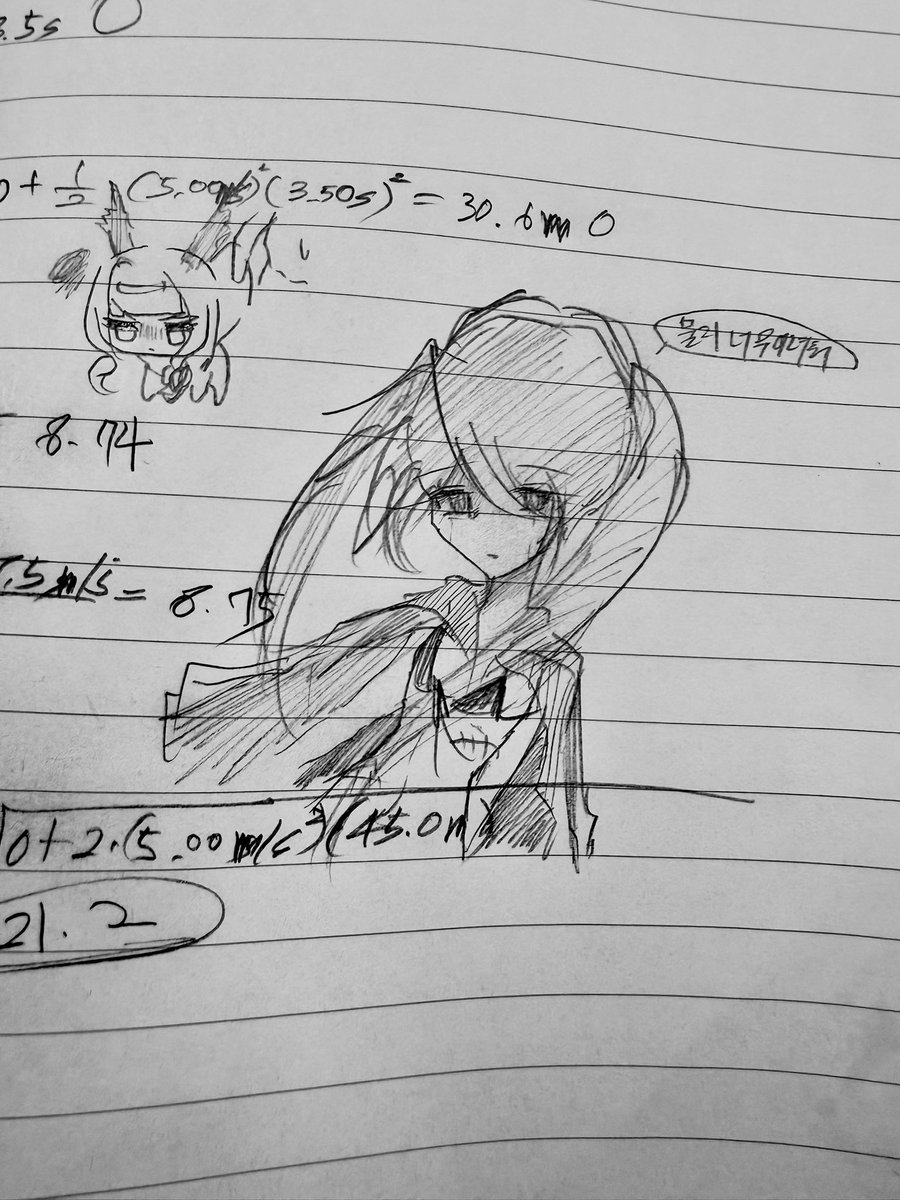 3.5s 0
0 + 1/2 (5.00m/s²)(3.50s)² = 30.6m 0
물리 너무
8.74
7.5 m/s = 8.75
0 + 2·(5.00 m/s²)(45.0m)
21.2